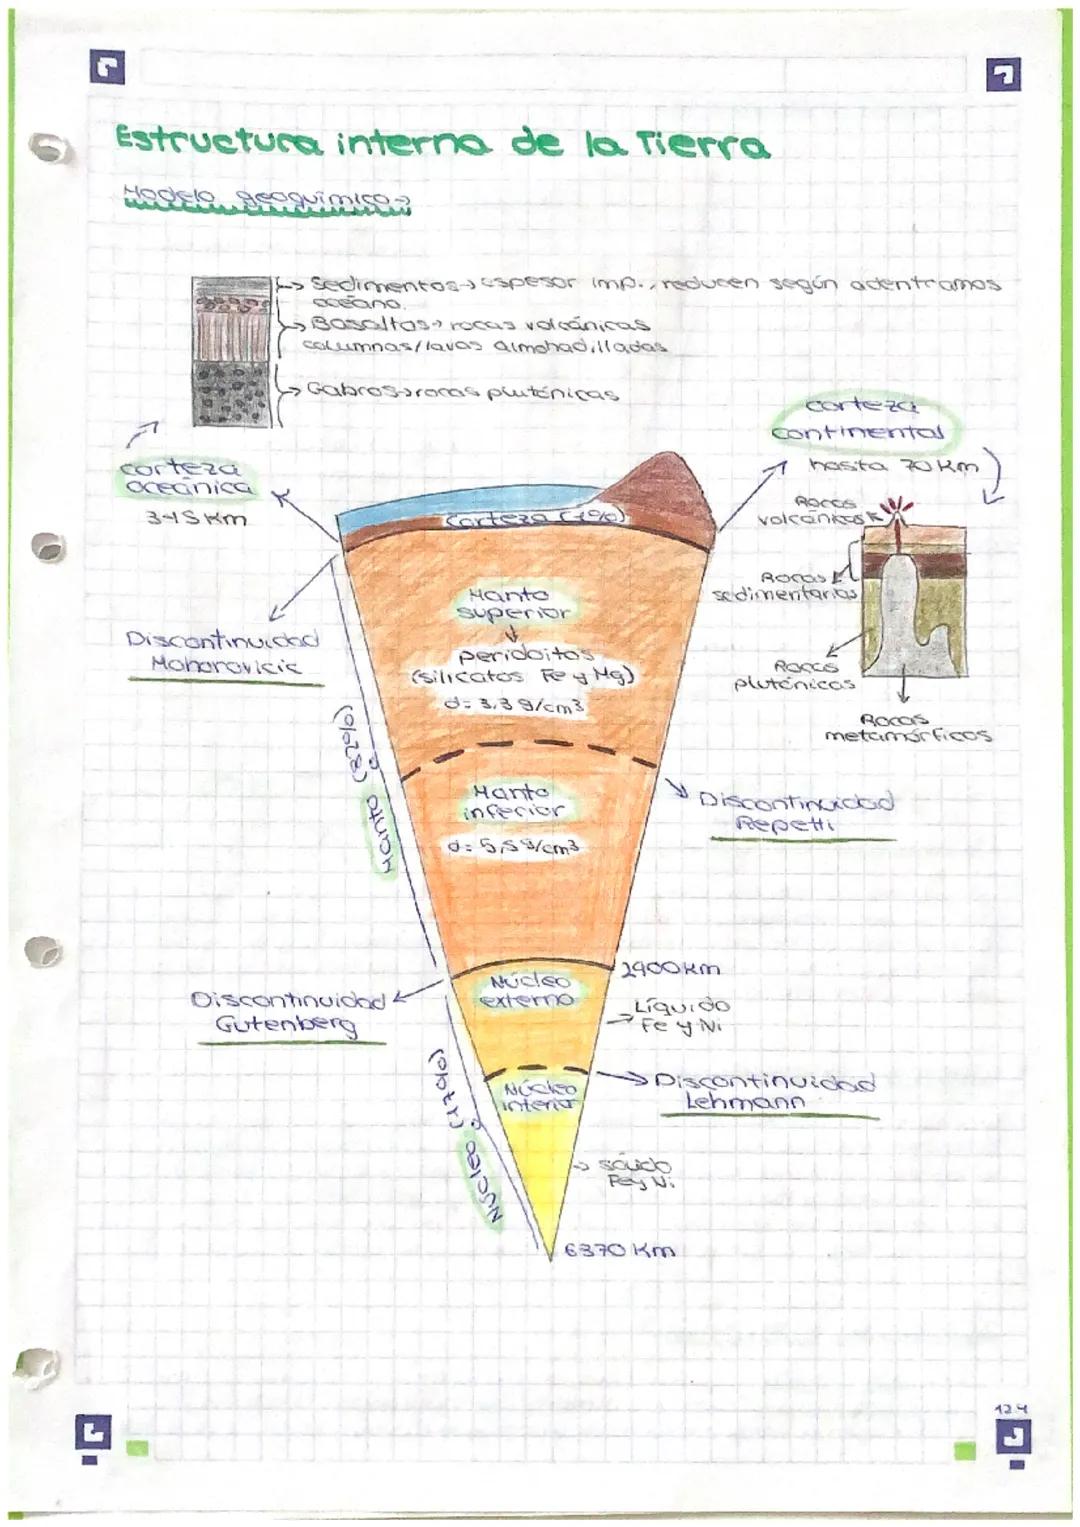 Estructura interna de la Tierra
Modelo geoquímico→
→ Sedimentos→ espesor imp., reducen según adentramos
océano.
→ Basaltos→ rocas volcánicas
columnas/lavas almohadilladas
→ Gabros→rocas plutónicas
corteza
continental
hasta 70 Km
corteza
oceánica
Rocas
volcánicas
Corteza (1%)
Rocas
sedimentarias
Manto
superior
Discontinuidad
Mohorovicic
peridoitos
(silicatos Fe y Mg)
d= 3,3 g/cm3
Rocas
plutónicas
Rocas
metamórficos
Manto (82%)
Manto
inferior
d= 5,5 g/cm3
Discontinuidad
Repetti
2900 Km
Núcleo
externo
Discontinuidad
Gutenberg
Líquido
Fe y Ni
Núcleo (17%)
Núcleo
interior
Discontinuidad
Lehmann
→ sólido
Fe y Ni
6370 Km
12.4